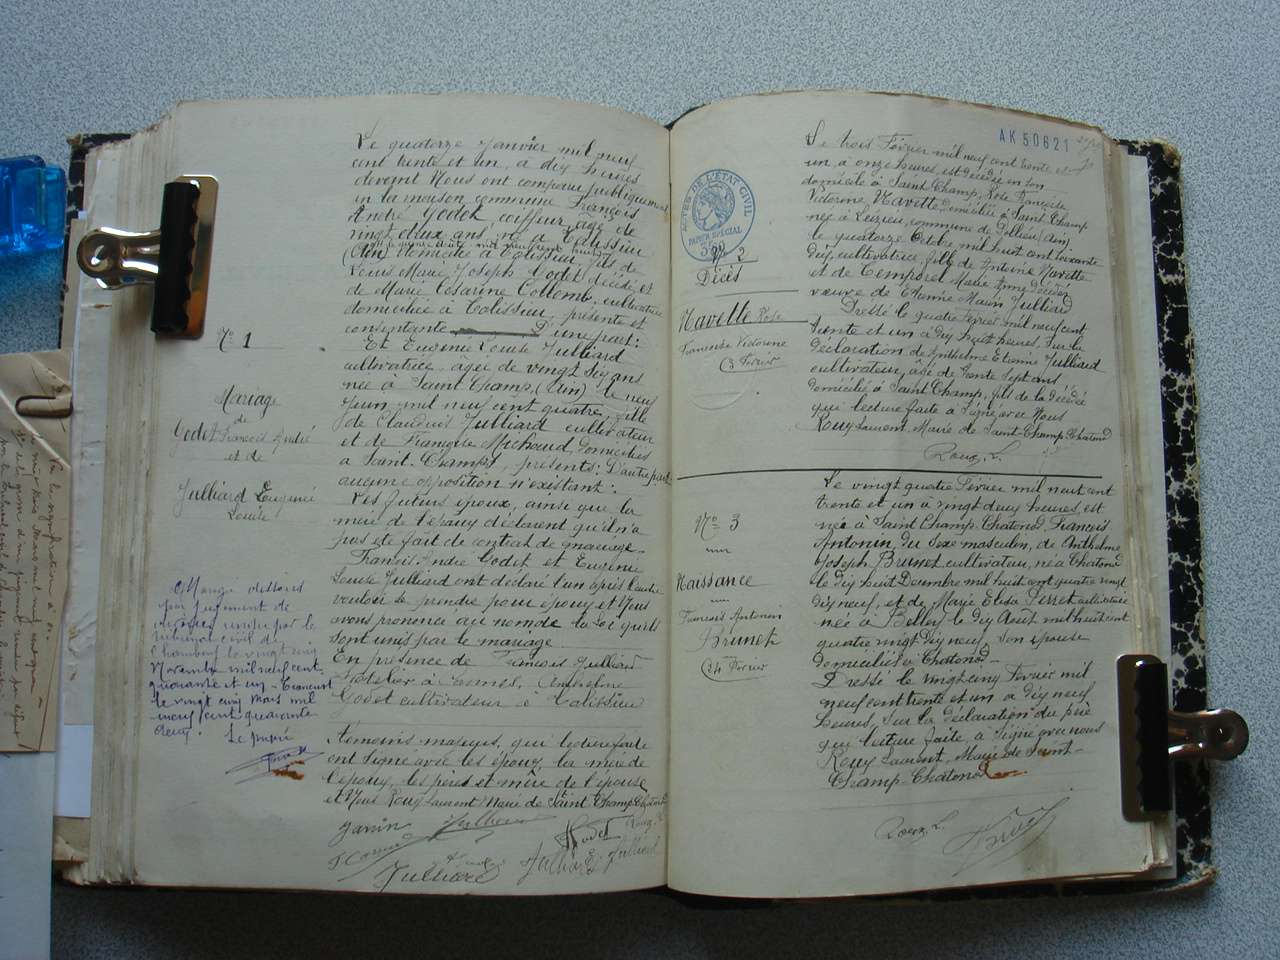 Le quatorze Janvier mil neuf
cent trente et un, à dix heures
devant Nous ont comparu publiquement
en la maison commune François
André Godet, coiffeur, âgé de
vingt deux ans, né à Talissieu
(Ain) domicilié à Talissieu, fils de
Louis Marie Joseph Godet décédé, et
de Marie Césarine Collomb, cultivatrice
domiciliée à Talissieu, présente et
consentante D'une part:
Et Eugénie Louise Julliard
cultivatrice, agée de vingt six ans
née à Saint Champ, (Ain) le neuf
Juin mil neuf cent quatre, fille
de Claudius Julliard cultivateur
et de Françoise Michoud, domiciliés
à Saint-Champ, présents: D'autre part
aucune opposition n'existant:
Les futurs époux, ainsi que la
mère de l'époux déclarent qu'il n'a
pas été fait de contrat de mariage.
François André Godet et Eugénie
Louise Julliard ont déclaré l'un après l'autre
vouloir se prendre pour époux et Nous
avons prononcé au nom de la Loi qu'ils
sont unis par le mariage
En présence de François Julliard
Godet cultivateur à Talissieu
témoins majeurs, qui lecture faite
ont signé avec les époux, la mère de
l'époux, les père et mère de l'épouse
et Nous Rouy Laurent Maire de Saint Champ Chatonod
No 1
Mariage
de
Godet François André
et de
Julliard Eugénie
Louise
Mariage dissous
par jugement de
divorce rendu par le
tribunal civil de
Chambéry le vingt cinq
Novembre mil neuf cent
quarante et un. Transcrit
le vingt cinq Mars mil
neuf cent quarante
deux.
Janin
Julliard
Godet
Julliard
AK 50621
ACTES DE L'ÉTAT CIVIL
PAPIER SPÉCIAL
No 2
Décès
Navette Rose
Françoise Victorine
(3 Février
Le trois Février mil neuf cent trente et
un à onze heures, est décédée en son
domicile à Saint Champ, Rose Françoise
Victorine, Navette, domiciliée à Saint Champ
née à Leyrieu, commune de Pollieu (Ain)
le quatorze Octobre mil huit cent soixante
dix, cultivatrice, fille de Antoine Navette
et de Temporel Marie Anne décédés
veuve de Etienne Marin Julliard
Dressé le quatre Février mil neuf cent
trente et un à dix huit heures, sur la
déclaration de Anthelme Etienne Julliard
cultivateur, âgé de trente sept ans
domicilié à Saint Champ, fils de la décédée
qui lecture faite a signé avec Nous
Rouy Laurent, Maire de Saint-Champ Chatonod
Rouy L.
No 3
Naissance
François Antonin
Brunet
(24 Février
Le vingt quatre Février mil neuf cent
trente et un à vingt deux heures, est
né à Saint Champ-Chatonod François
Antonin, du sexe masculin, de Anthelme
Joseph Brunet cultivateur, né à Chatonod
le dix huit Décembre mil huit cent quatre vingt
dix neuf, et de Marie Elisa Perret cultivatrice
née à Belley le dix Août mil huit cent
quatre vingt dix neuf, son épouse
domiciliés à Chatonod
Dressé le vingt cinq Février mil
neuf cent trente et un à dix neuf
heures, sur la déclaration du père
qui lecture faite, a signé avec nous
Rouy Laurent, Maire de Saint-
Champ-Chatonod
Rouy L.